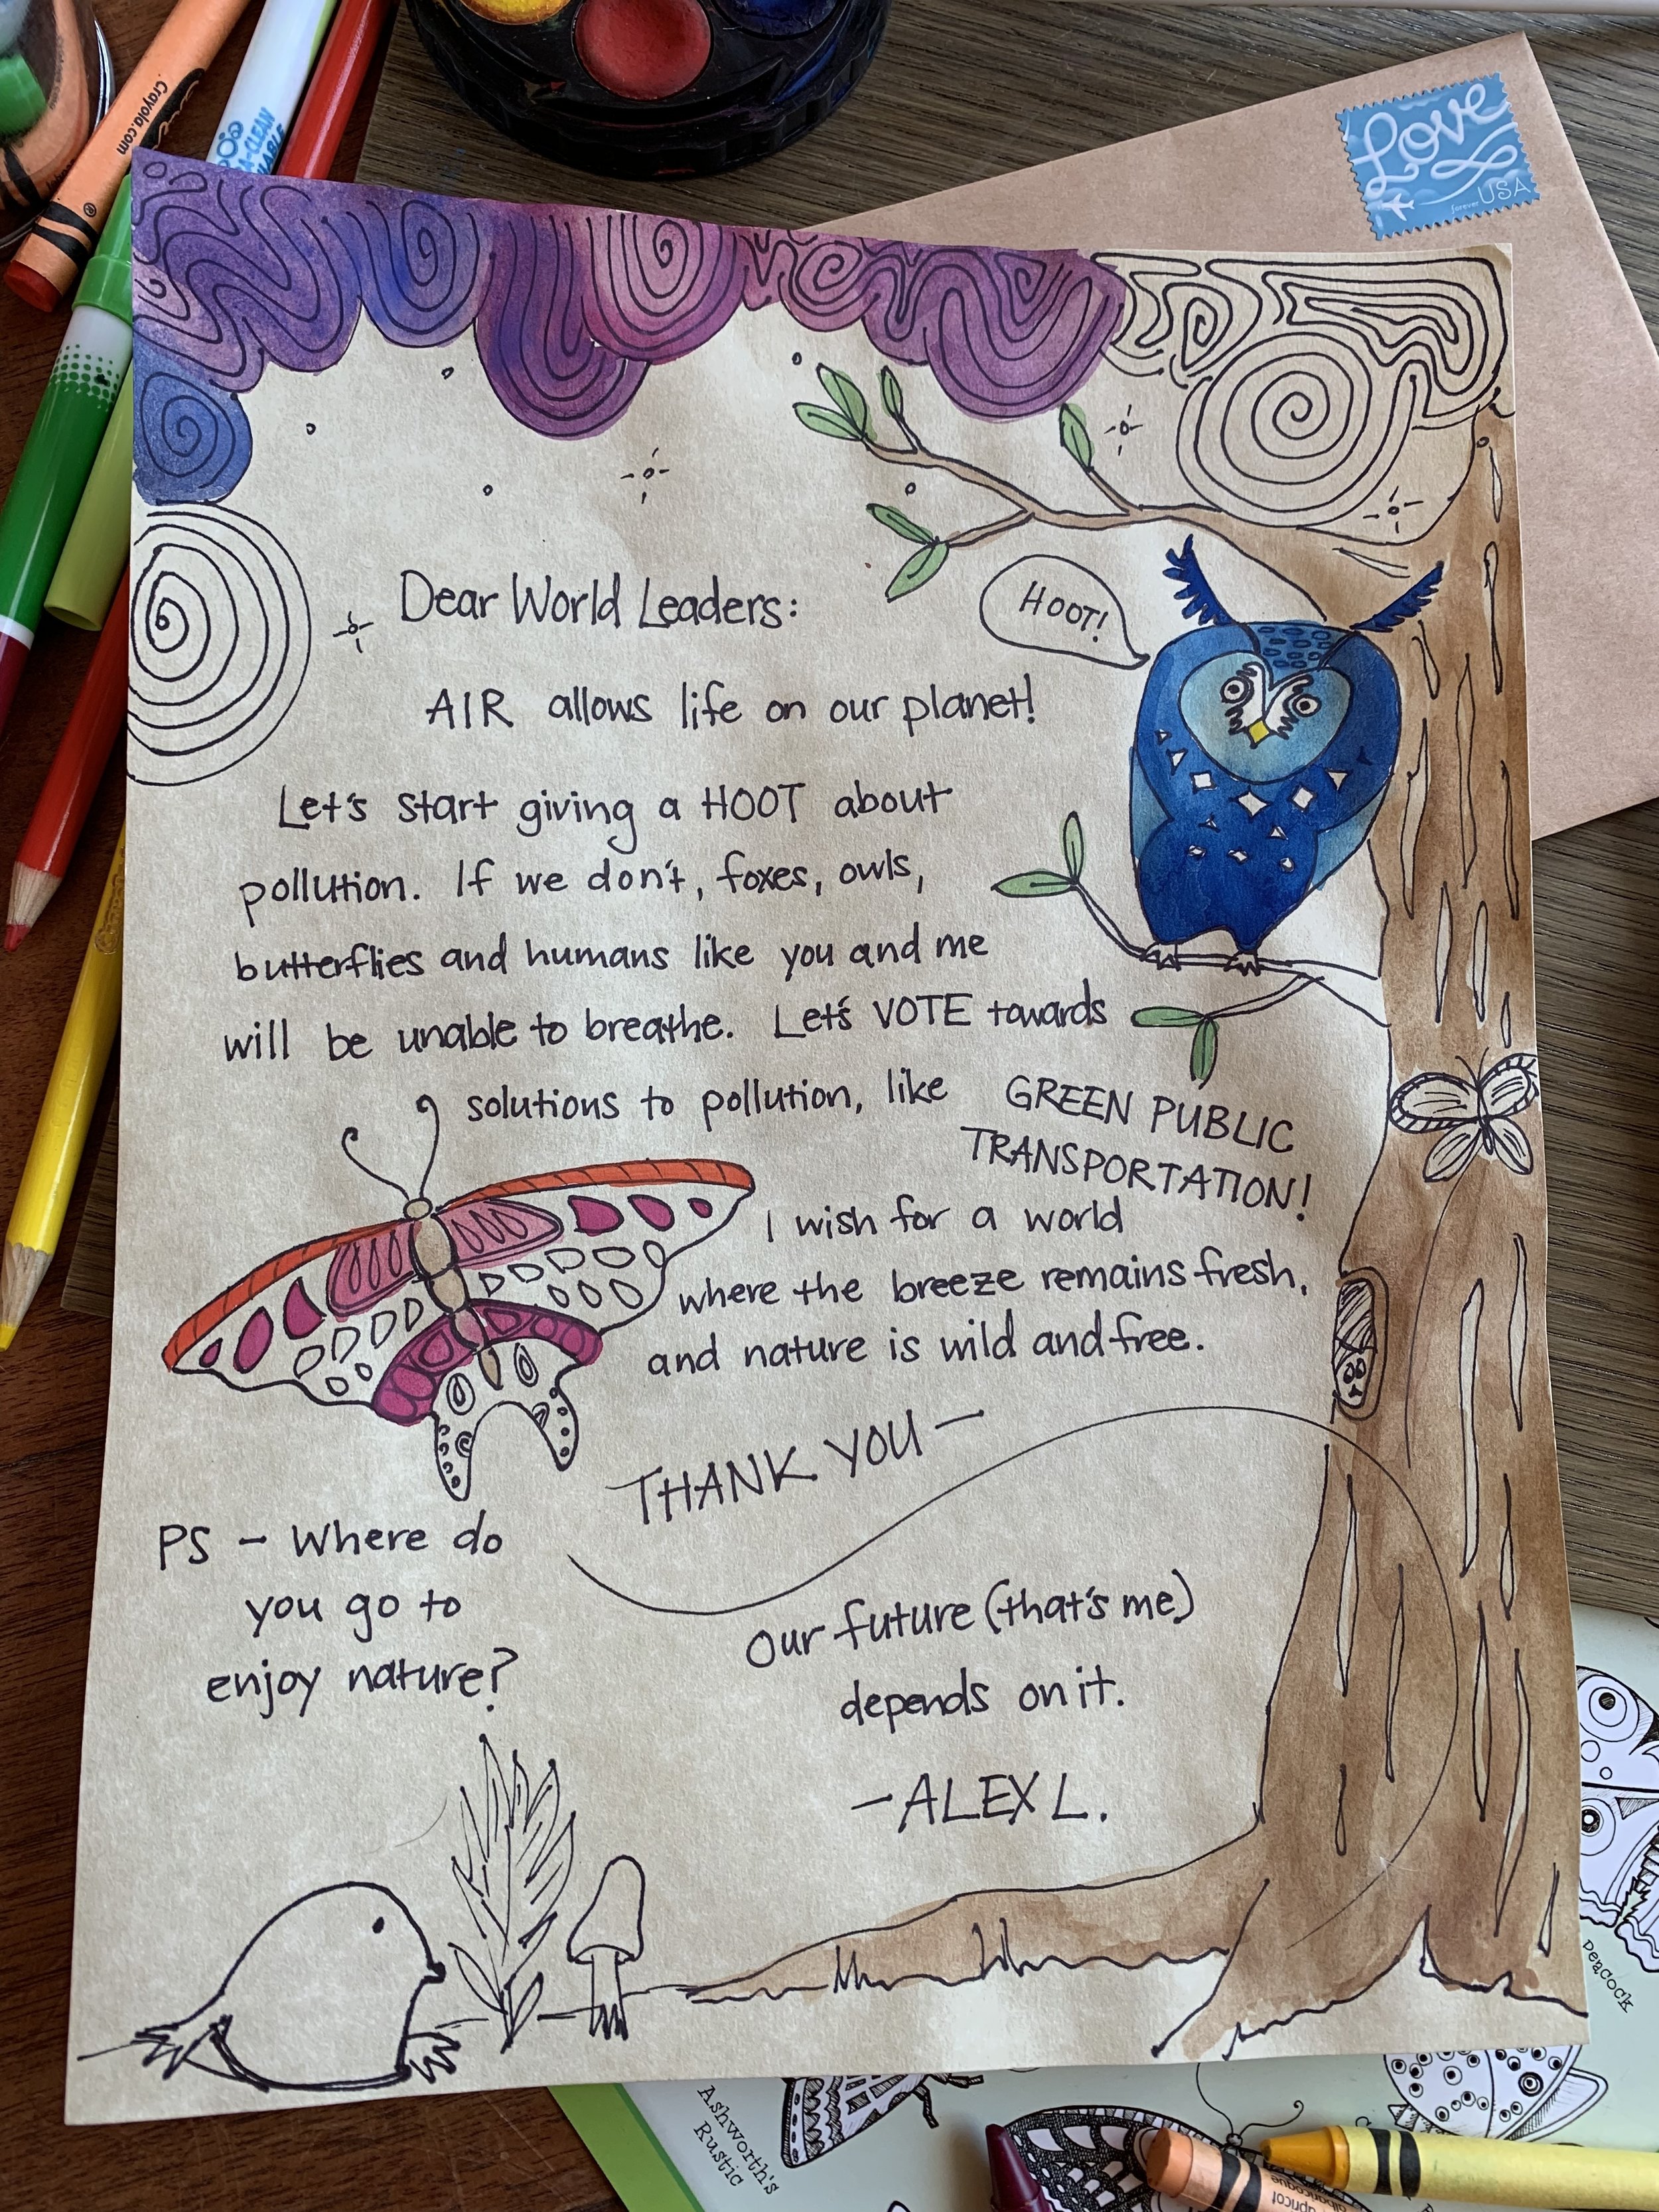 Crayola.com
®
A-CLEAN
Love
forever USA
Dear World Leaders:
HOOT!
AIR allows life on our planet!
Let's start giving a HOOT about
pollution. If we don't, foxes, owls,
butterflies and humans like you and me
will be unable to breathe. Let's VOTE towards
solutions to pollution, like GREEN PUBLIC
TRANSPORTATION!
I wish for a world
where the breeze remains fresh,
and nature is wild and free.
THANK YOU —
PS - Where do
you go to
enjoy nature?
Our future (that's me)
depends on it.
-ALEX L.
Peacock
Ashworth's
Rustic
apricot
albaricoque